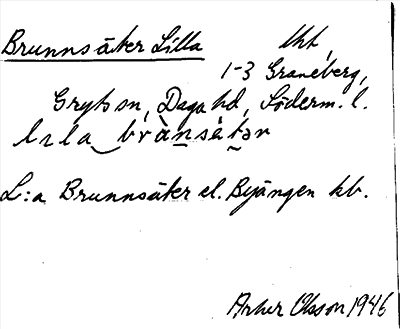 Brunnsåker Lilla lht,
1-3 Graneberg,
Gryts sn, Daga hd, Söderm. l.
L:a Brunnsåker el. Byängen kb.
Arher Olsson 1946